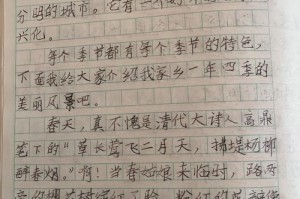 分明的城市。它有一个好
兴化。
每个季节都有每个季节的特色，
下面我给大家介绍我家乡一年四季的
美丽风景吧。
春天，真不愧是清代大诗人高鼎
笔下的“草长莺飞二月天，拂堤杨柳
醉春烟。”啊！当春姑娘来临时，路两